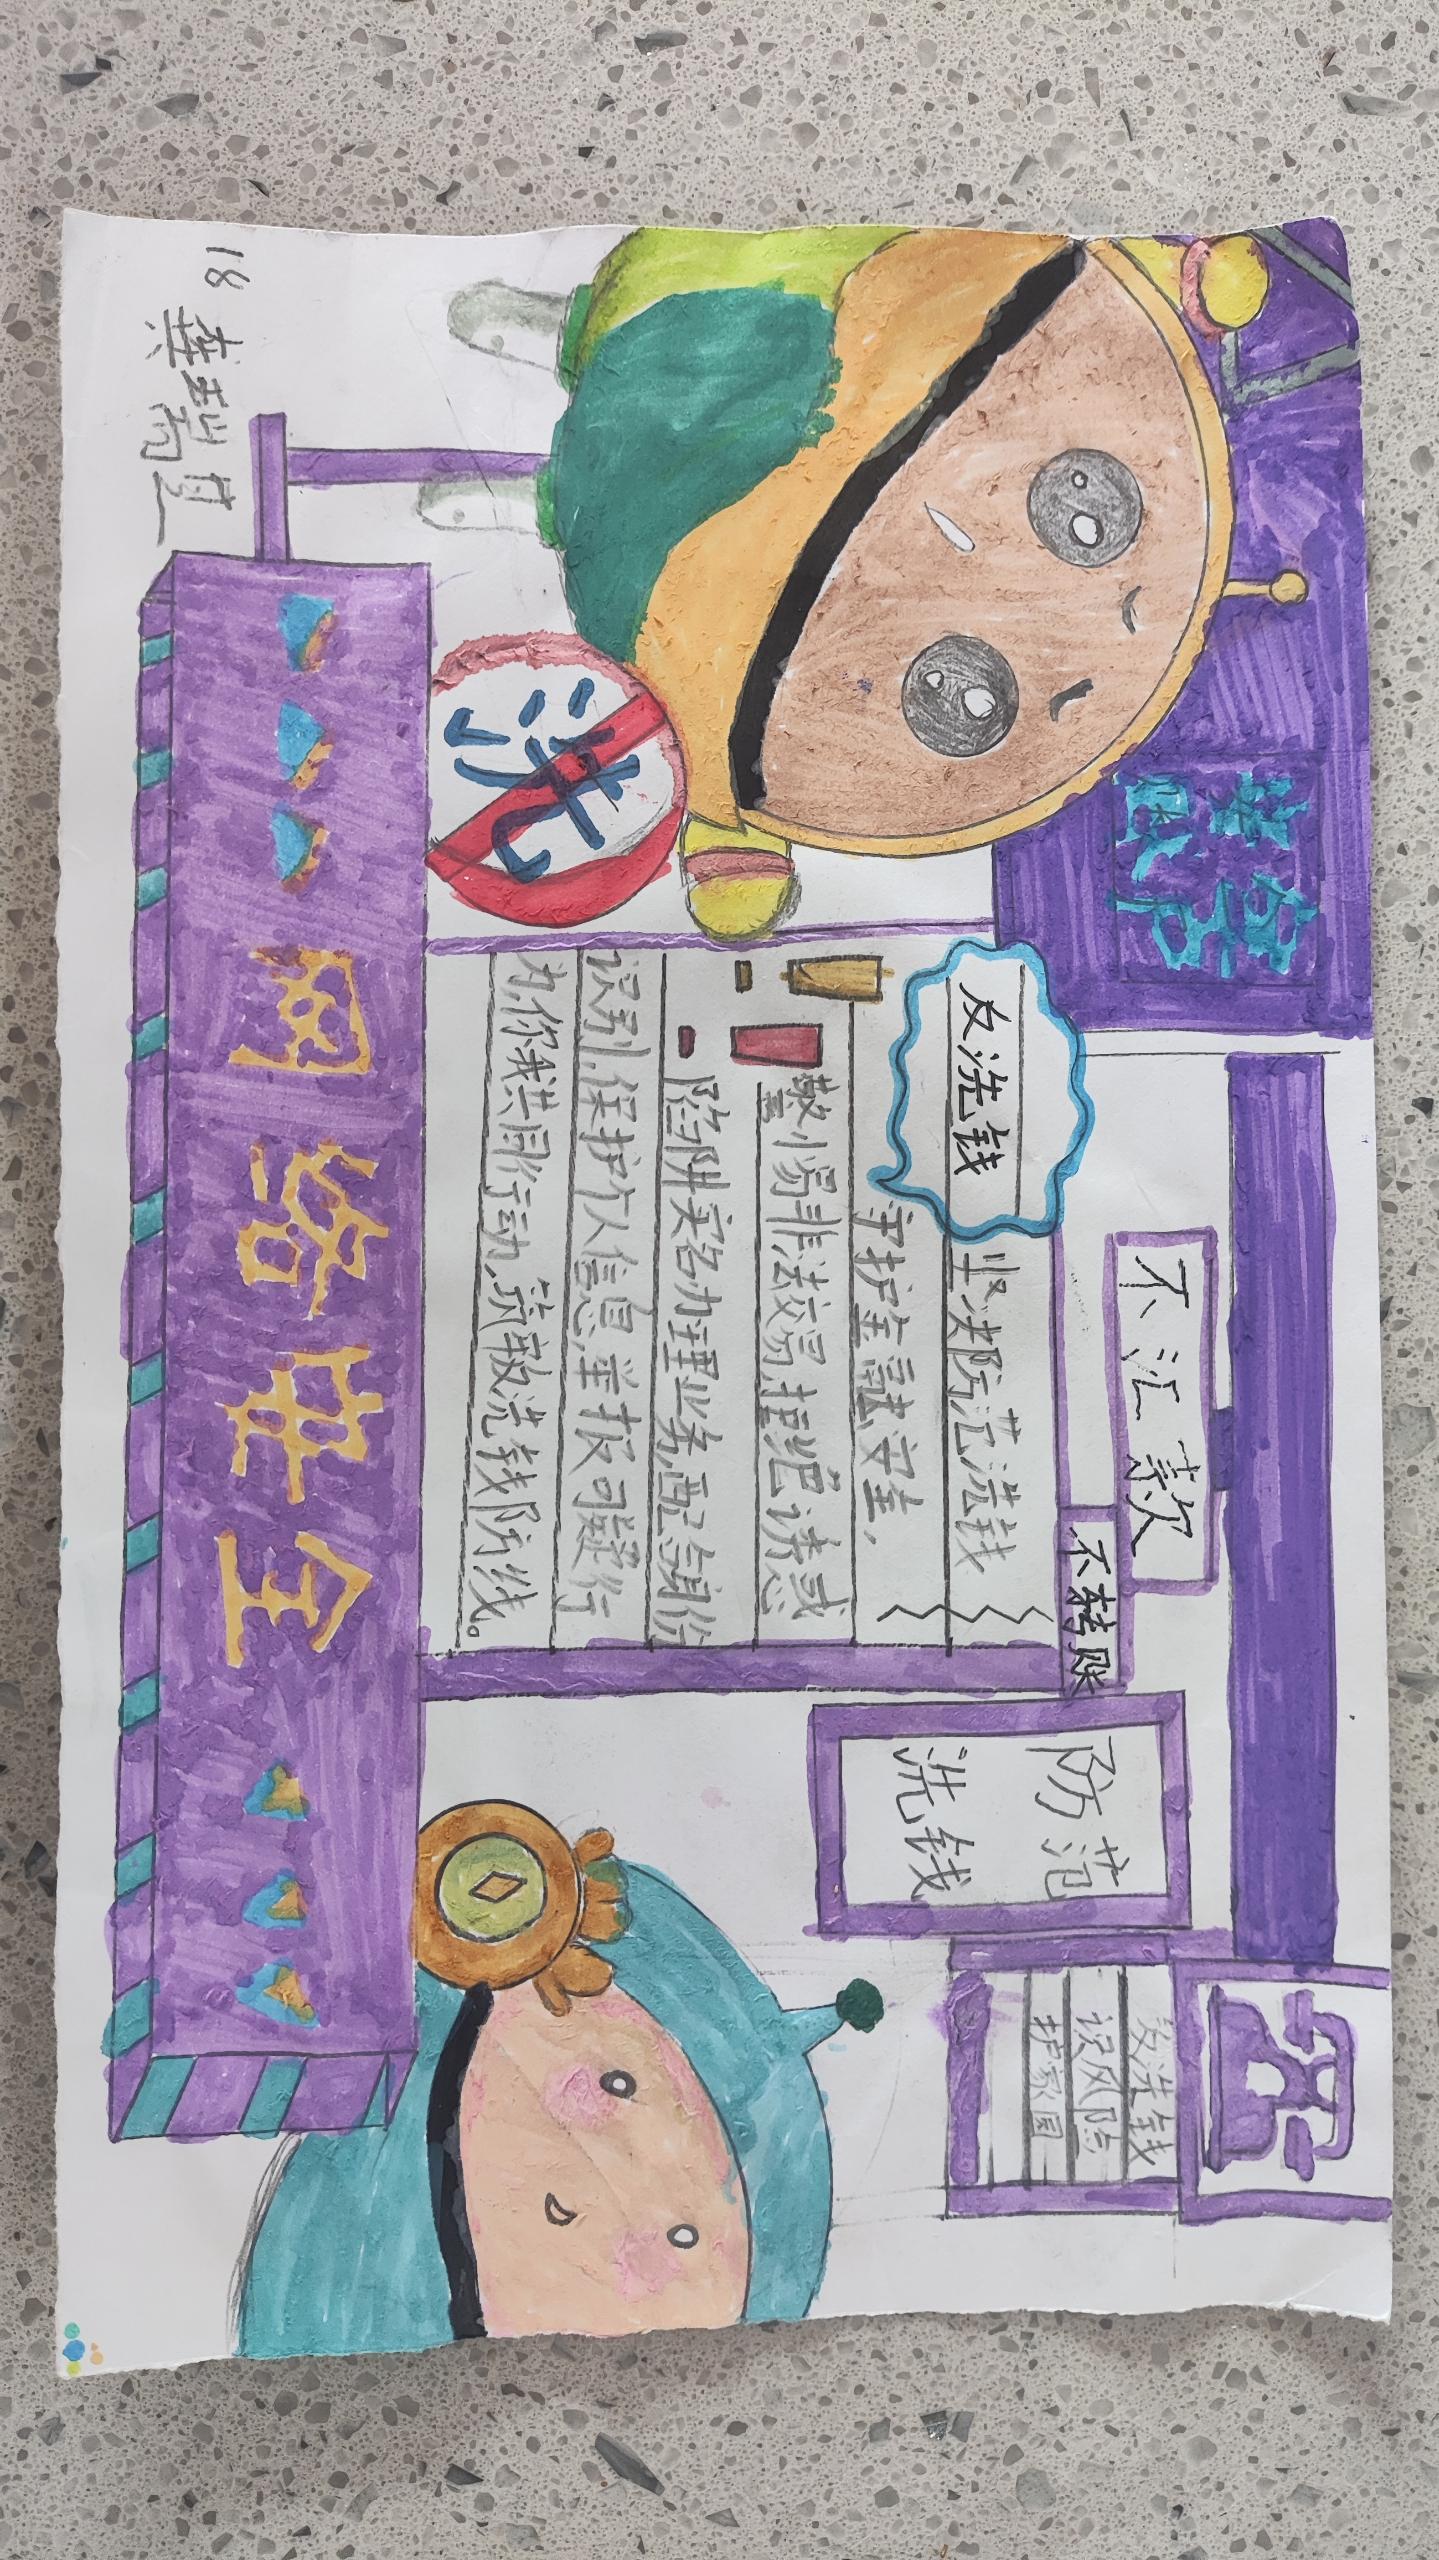 不汇款
不转账
反洗钱
坚决防范洗钱
守护金融安全，
警惕非法交易拒绝诱惑
陷阱实名办理业务配合身份
识别，保护个人信息，举报可疑行
为你我共同行动，筑洗钱防线。
防范
洗钱
洗钱
识风险
护家园
洗
网络安全
18